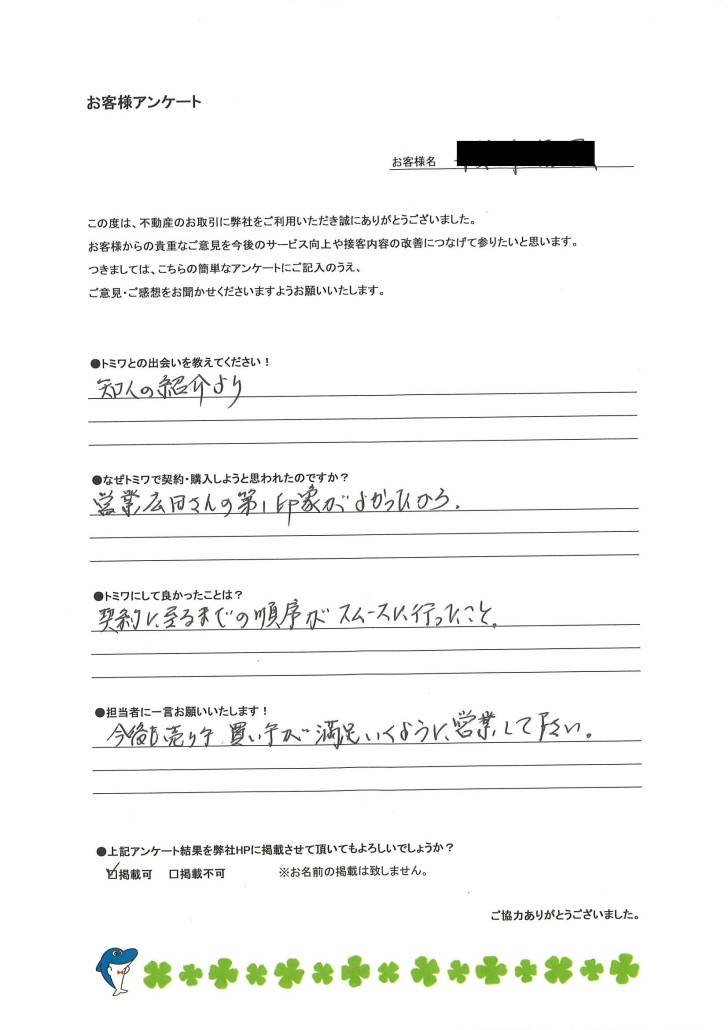 お客様アンケート
お客様名
この度は、不動産のお取引に弊社をご利用いただき誠にありがとうございました。
お客様からの貴重なご意見を今後のサービス向上や接客内容の改善につなげて参りたいと思います。
つきましては、こちらの簡単なアンケートにご記入のうえ、
ご意見・ご感想をお聞かせくださいますようお願いいたします。
●トミワとの出会いを教えてください！
知人の紹介より
●なぜトミワで契約・購入しようと思われたのですか？
営業広田さんの第1印象がよかったから。
●トミワにして良かったことは？
契約に至るまでの順序がスムースに行ったこと。
●担当者に一言お願いいたします！
今後も売り手 買い手が満足いくように営業して下さい。
●上記アンケート結果を弊社HPに掲載させて頂いてもよろしいでしょうか？
☑掲載可 □掲載不可 ※お名前の掲載は致しません。
ご協力ありがとうございました。